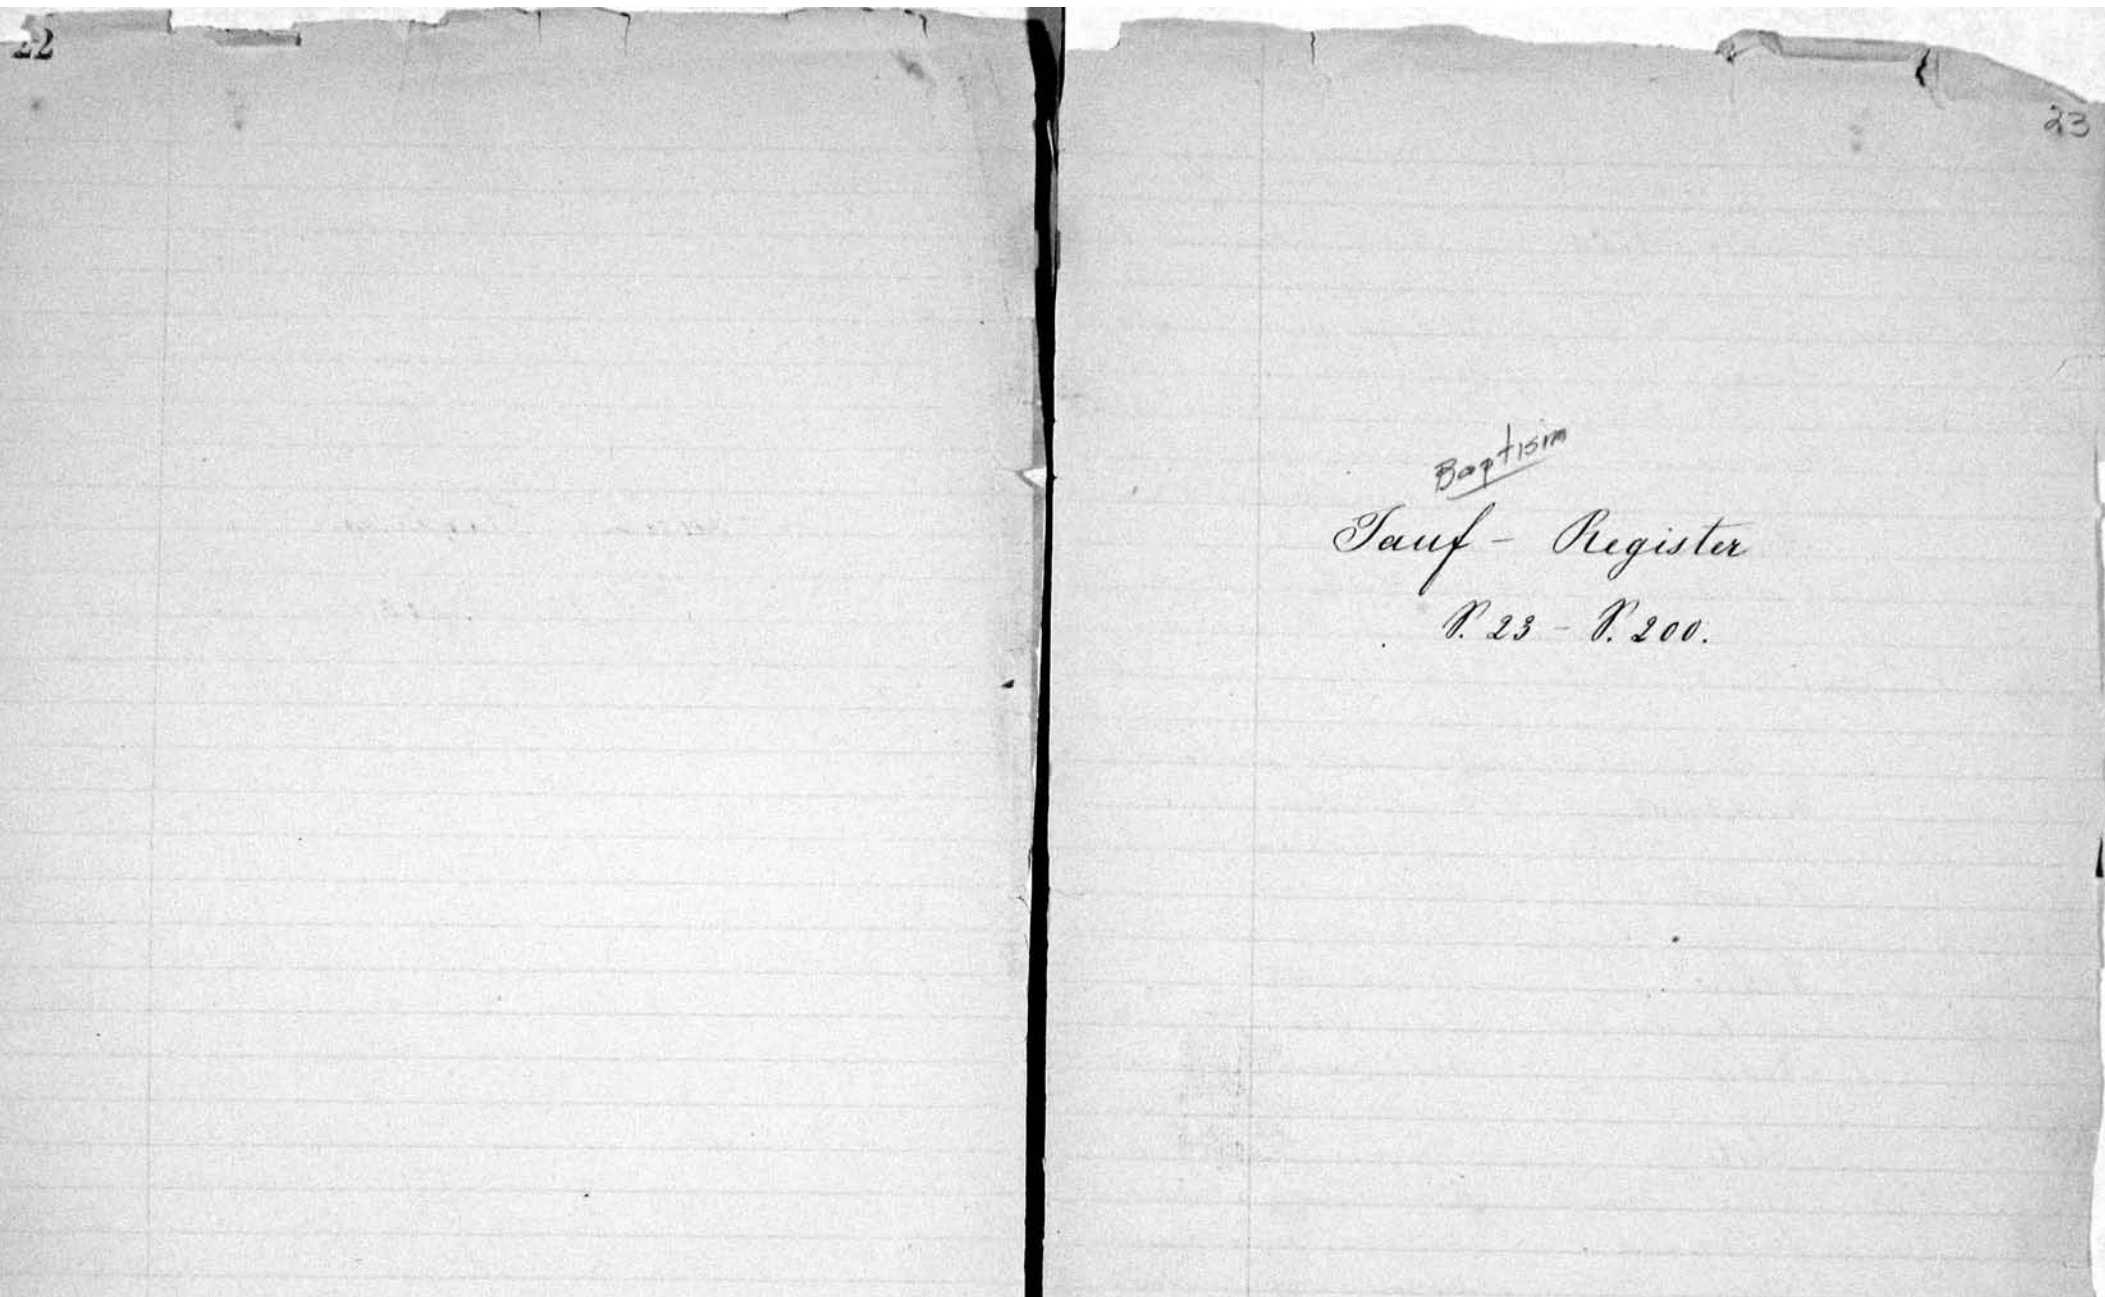 22
23
Baptism
Tauf - Register
P. 23 - P. 200.